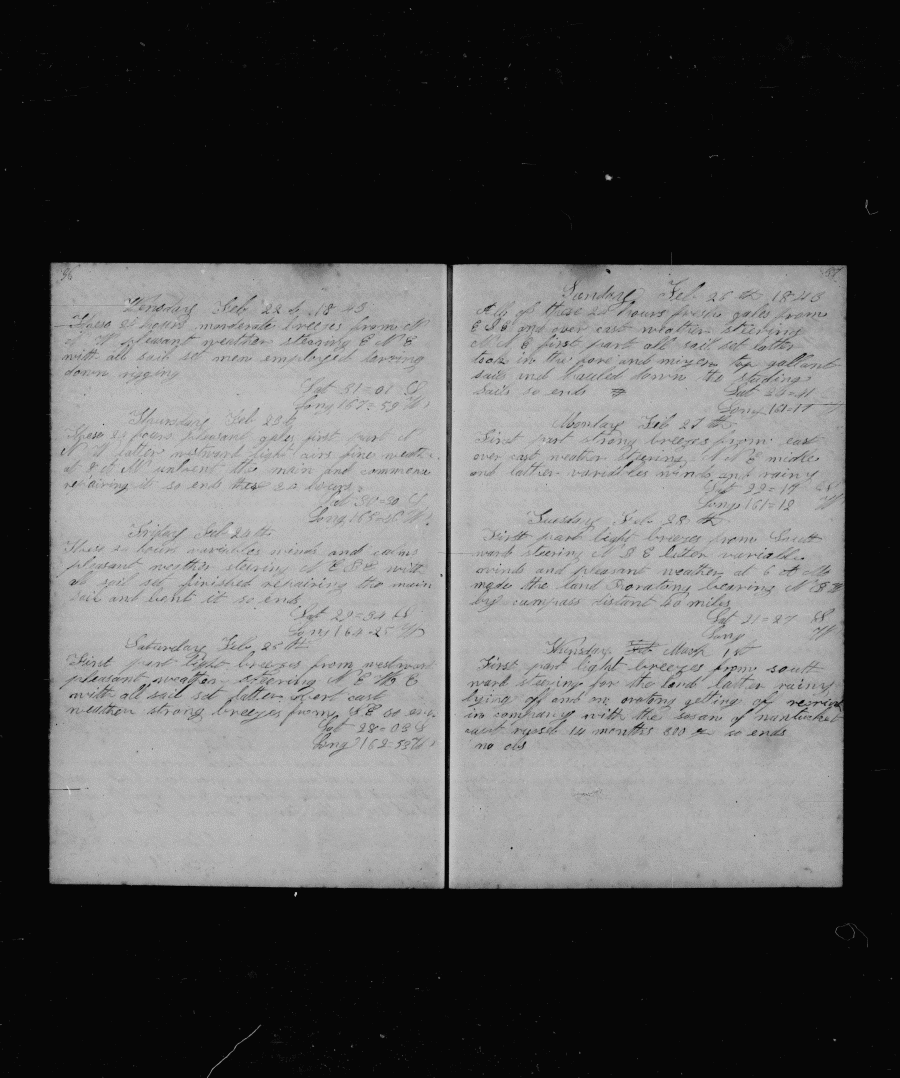 56
Wensday Feb 22 d 1843
These 24 hours moderate breezes from N
N W pleasant weather steering E N E
with all sail set men employed
down rigging
Lat 31=01 S
Long 167=59 W
Thursday Feb 23 d
These 24 hours pleasant gales first part N
N W latter westward light airs fine weather
at 8 A M unbent the main and commence
repairing it so ends these 24 hours
Lat 30=30 S
Long 165=40 W
Friday Feb 24 th
These 24 hours variables winds and calms
pleasant weather steering N E B E with
all sail set finished repairing the main
sail and bent it so ends
Lat 29=34 S
Long 164=25 W
Saturday Feb 25 th
First part light breezes from westward
pleasant weather steering N E B E
with all sail set latter overt cast
weather strong breezes from S E so ends
Lat 28=03 S
Long 162=53 W
57
Sunday Feb 26 th 1843
All of these 24 hours fresh gales from
E S E and over cast weather steering
N N E first part all sail set latter
took in the fore and mizen top gallant
sails and hauled down the studings
sails so ends
Lat 26=11
Long 161=17
Monday Feb 27 th
First part strong breezes from east
over cast weather steering N N E midle
and latter variables winds and rainy
Lat 22=17 S
Long 161=12 W
Tuesday Feb 28 th
Firtt part light breezes from South
ward steering N B E latter variable
winds and pleasant weather at 6 A M
made the land Rorating bearing N E B E
by compass distant 40 miles
Lat 21=27 S
Long W
Wensday Feb March 1 st
First part light breezes from south
ward steering for the land latter rainy
lying off and on orating geting of recruit
in company with the of nantucket
last reports 14 months 800 so ends
no obs